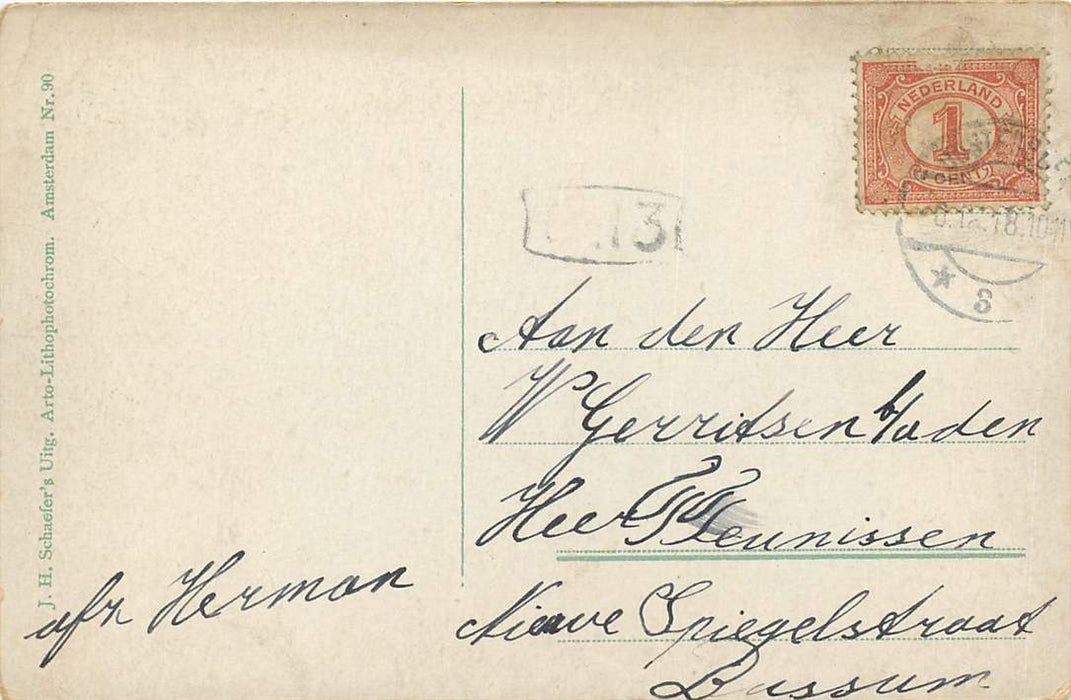 J. H. Schaefer's Uitg. Arto-Lithophotochrom. Amsterdam Nr. 90
NEDERLAND
1
CENT
.13
8.12.18.10
8
Aan den Heer
W Gerritsen b/a den
Heer Theunissen
Nieuwe Spiegelstraat
Bussum
afz Herman